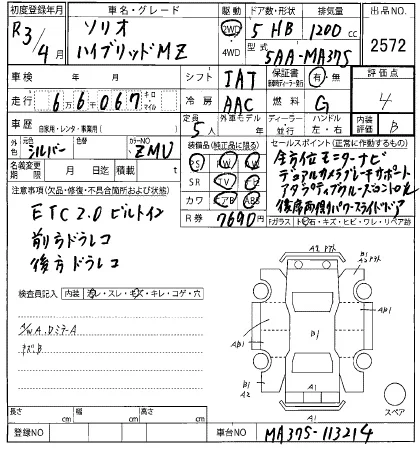 初度登録年月 車名・グレード 駆動 ドア数/形状 排気量 出品NO.
R3/4月 ソリオ ハイブリッドMZ 2WD 4WD 5 HB 1200cc 2572
型式 5AA-MA37S
車検 年 月 シフト IAT 保証書 有・無 評価点
走行 66,067 キロ マイル 冷房 AAC 燃料 G 4
車歴 自家用・レンタ・事業用( ) 定員 5人 外車モデル年 ディーラー 並行 ハンドル 左・右 内装評価 B
外色 元色 シルバー 色替 カラーNO ZMU 装備品(純正品に限る) セールスポイント(正常に作動するもの)
名義変更期限 月 日迄 積載量 t PS PW AW
SR TV ナビ
カワ エアB ABS
R券 7690円
全方位モニターナビ
デュアルカメラブレーキサポート
アダプティブクルーズコントロール
後席両側パワースライドドア
Fガラス トビ石・キズ・ヒビ・ワレ・リペア跡
注意事項(欠品・修復・不具合箇所および状態)
ETC2.0 ビルトイン
前方ドラレコ
後方ドラレコ
検査員記入 内装 汚レ・スレ・キズ・キレ・コゲ・穴
A/W A、DミラーA
キズB
A2
B1
A2
AB1
B1
AB1
AB1
B1
A2
B1
A1
A1
スペア
長さ cm 幅 cm 高さ cm
登録NO 車台NO MA37S-113214